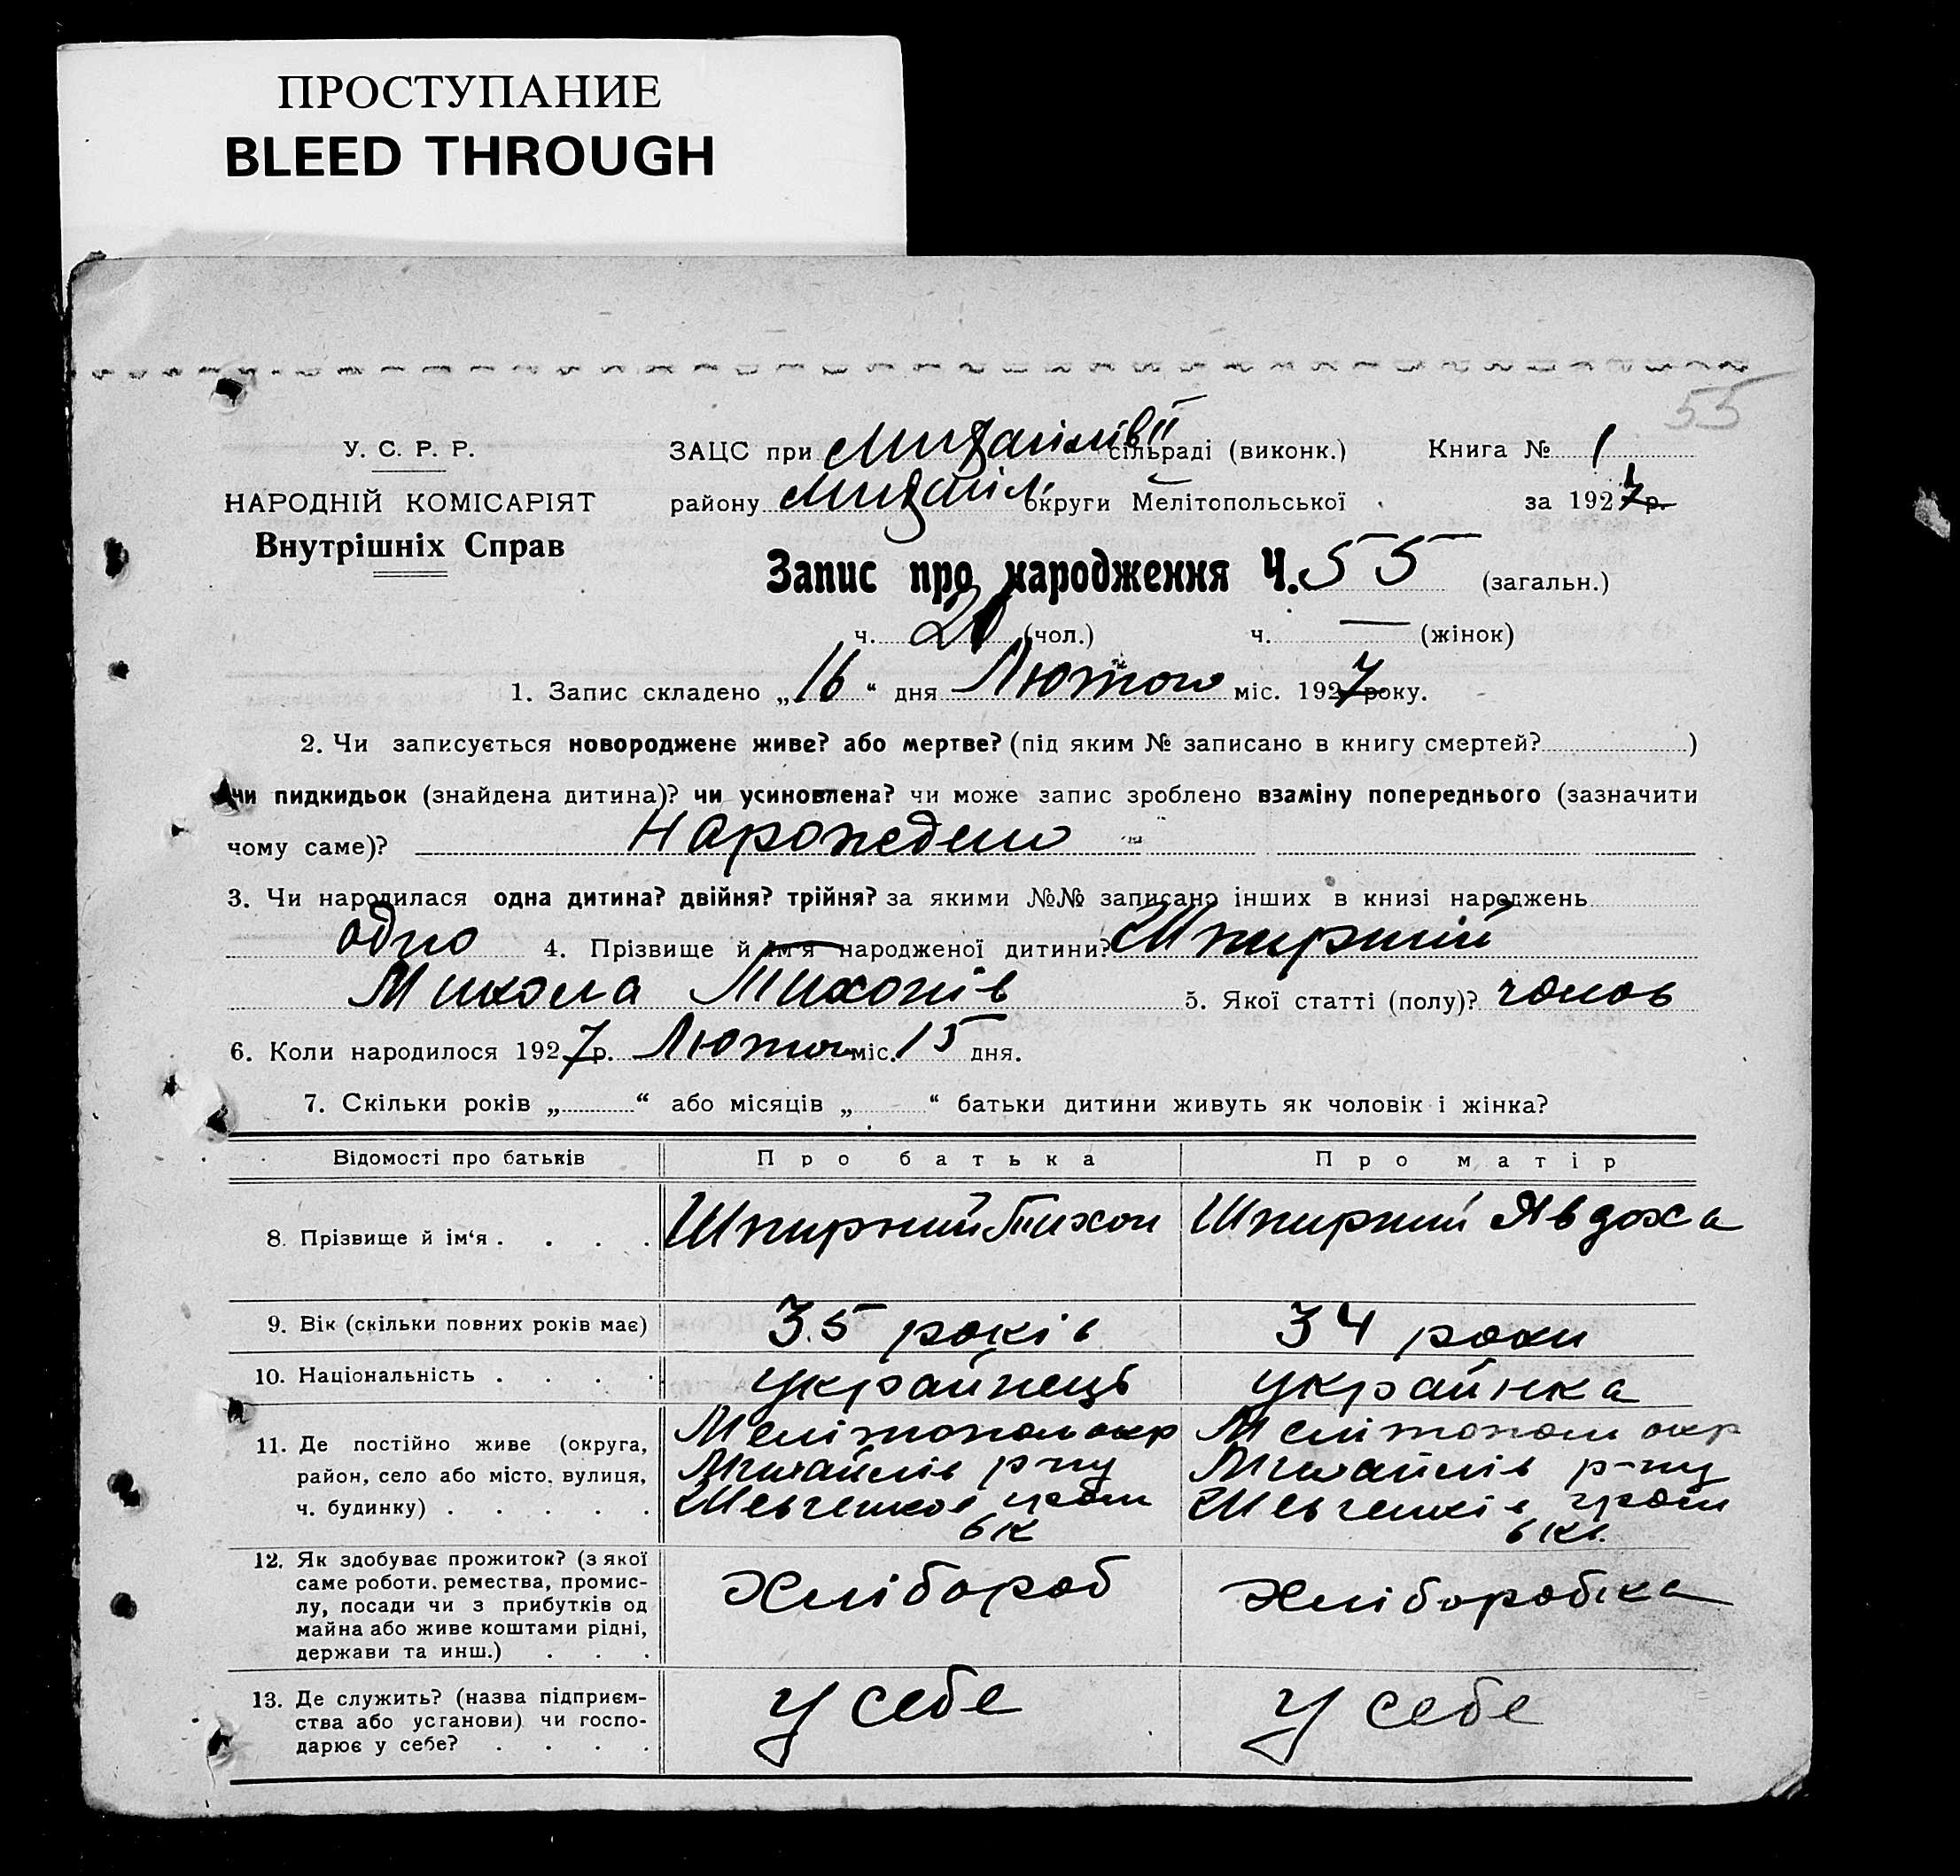 ПРОСТУПАНИЕ
BLEED THROUGH
55
У. С. Р. Р.
НАРОДНІЙ КОМІСАРІЯТ
Внутрішніх Справ
ЗАЦС при Михайлів II сільраді (виконк.) Книга № 1
району Михайл. округи Мелітопольської за 1927 р.
Запис про народження Ч. 55 (загальн.)
ч. 20 (чол.) ч. — (жінок)
1. Запис складено „16“ дня Лютого міс. 1927 року.
2. Чи записується новороджене живе? або мертве? (під яким № записано в книгу смертей? )
чи пидкидьок (знайдена дитина)? чи усиновлена? чи може запис зроблено взаміну попереднього (зазначити
чому саме)? Нарождено
3. Чи народилася одна дитина? двійня? трійня? за якими №№ записано інших в книзі народжень
одно 4. Прізвище й ім'я народженої дитини? Шпирний
Микола Тихонів 5. Якої статті (полу)? чолов
6. Коли народилося 1927 р. Лютого міс. 15 дня.
7. Скільки років „ “ або місяців „ “ батьки дитини живуть як чоловік і жінка?
Відомості про батьків Про батька Про матір
8. Прізвище й ім‘я . . . . Шпирний Тихон Шпирний Явдоха
9. Вік (скільки повних років має) 35 років 34 роки
10. Національність . . . . українець українка
11. Де постійно живе (округа, Мелітополь окр Мелітополь окр
район, село або місто, вулиця, Михайлів р-ну Михайлів р-ну
ч. будинку) . . . . . Шевченков Шевченків
6 К 6 Кв.
12. Як здобуває прожиток? (з якої
саме роботи, ремества, промис- Хлібороб Хліборобка
лу, посади чи з прибутків од
майна або живе коштами рідні,
держави та инш.) . . .
13. Де служить? (назва підприєм- У себе У себе
ства або установи) чи госпо-
дарює у себе? . . . .